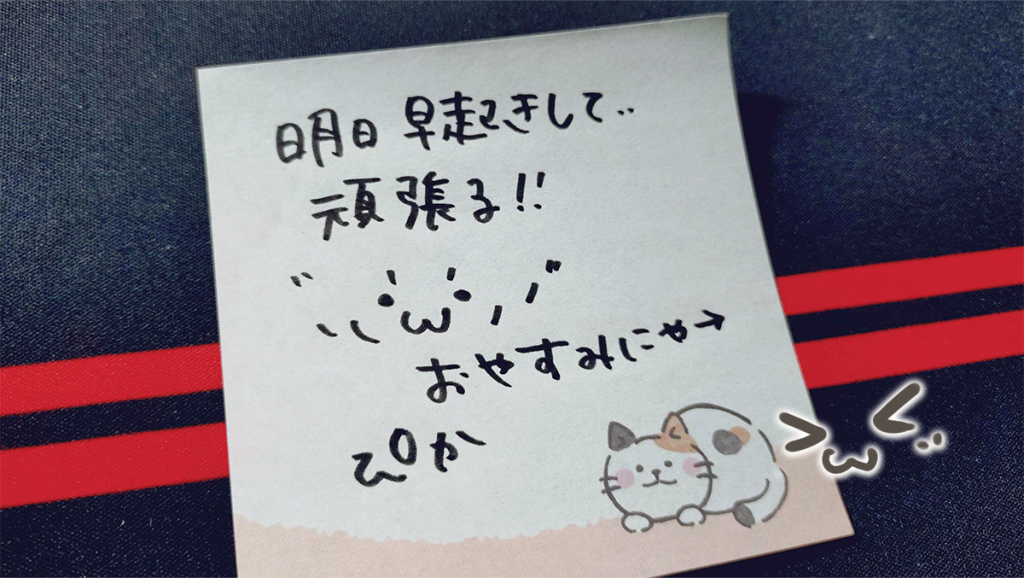 明日 早起きして..
頑張る!!
ヾ(,,･ω･,,)ﾉ"
おやすみにゃ→
ぴか
>ω<..